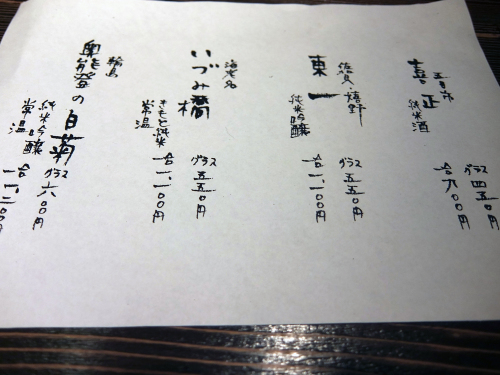 五日市
喜正
純米酒
グラス 四五〇円
一合 九〇〇円
佐賀・嬉野
東一
純米吟醸
グラス 五五〇円
一合 一、一〇〇円
海老名
いづみ橋
きもと純米
常温
グラス 五五〇円
一合 一、一〇〇円
輪島
奥能登の白菊
純米吟醸
常温
グラス 六〇〇円
一合 一、二〇〇円